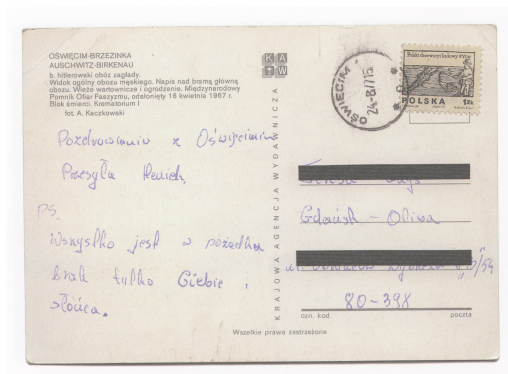 OŚWIĘCIM-BRZEZINKA
AUSCHWITZ-BIRKENAU
b. hitlerowski obóz zagłady.
Widok ogólny obozu męskiego. Napis nad bramą główną
obozu. Wieże wartownicze i ogrodzenie. Międzynarodowy
Pomnik Ofiar Faszyzmu, odsłonięty 16 kwietnia 1967 r.
Blok śmierci. Krematorium I
fot. A. Kaczkowski
Pozdrowieniu z Oświęcimia
Przesyła Heniek
PS.
Wszystko jest w porządku
brak tylko Ciebie i
słońca.
KAW
KRAJOWA AGENCJA WYDAWNICZA
OŚWIĘCIM 1
24-8/775
POLSKA
Gdańsk - Oliwa
80-398
ozn. kod.
poczta
Wszelkie prawa zastrzeżone